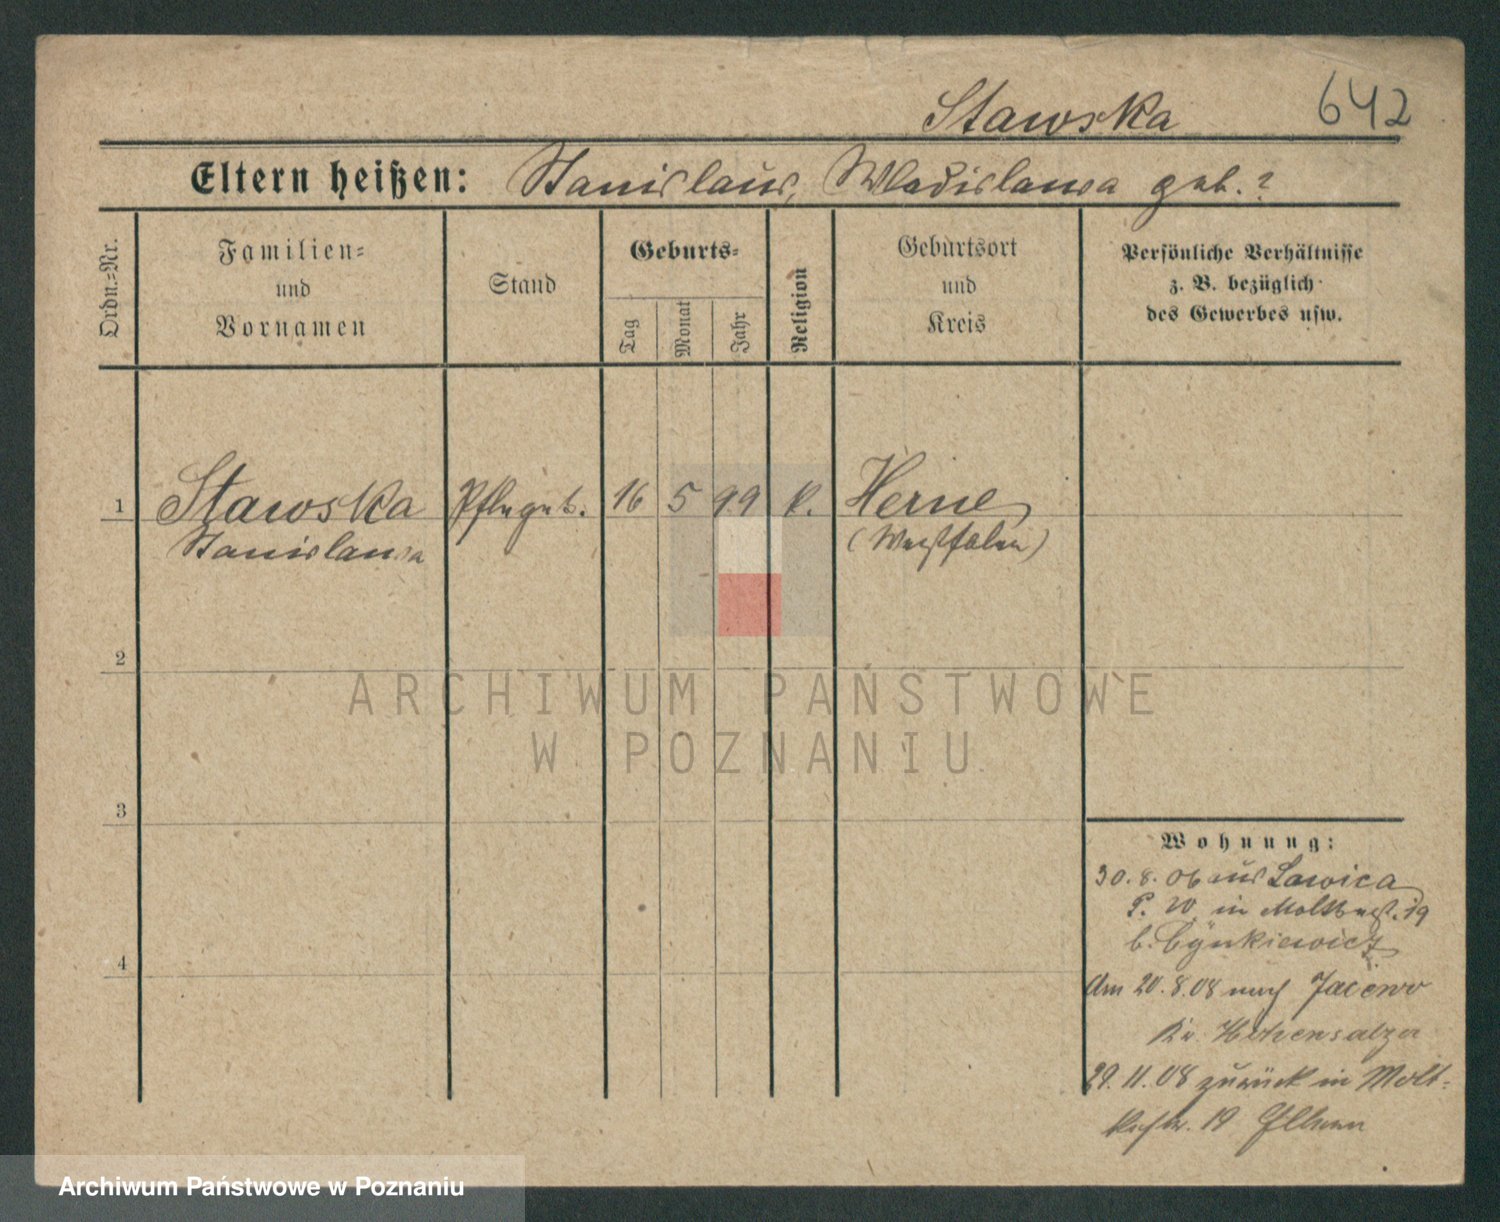 Stawska 642
Eltern heißen: Stanislaus, Wladislawa geb. ?
Ordn.-Nr.
Familien-
und
Vornamen
Stand
Geburts-
Tag
Monat
Jahr
Religion
Geburtsort
und
Kreis
Persönliche Verhältnisse
z. B. bezüglich
des Gewerbes usw.
1 Stawska 16 5 99 k. Herne
Stanislawa (Westfalen)
2
ARCHIWUM PAŃSTWOWE
W POZNANIU
3
4
Wohnung:
30. 8. 06 aus Lawica
P. W. in Moltkestr. 19
b. Cynkiewicz
Am 20. 8. 08 nach Jacewo
Kr. Hohensalza
29. 11. 08 zurück in Molt-
kestr. 19 Eltern
Archiwum Państwowe w Poznaniu